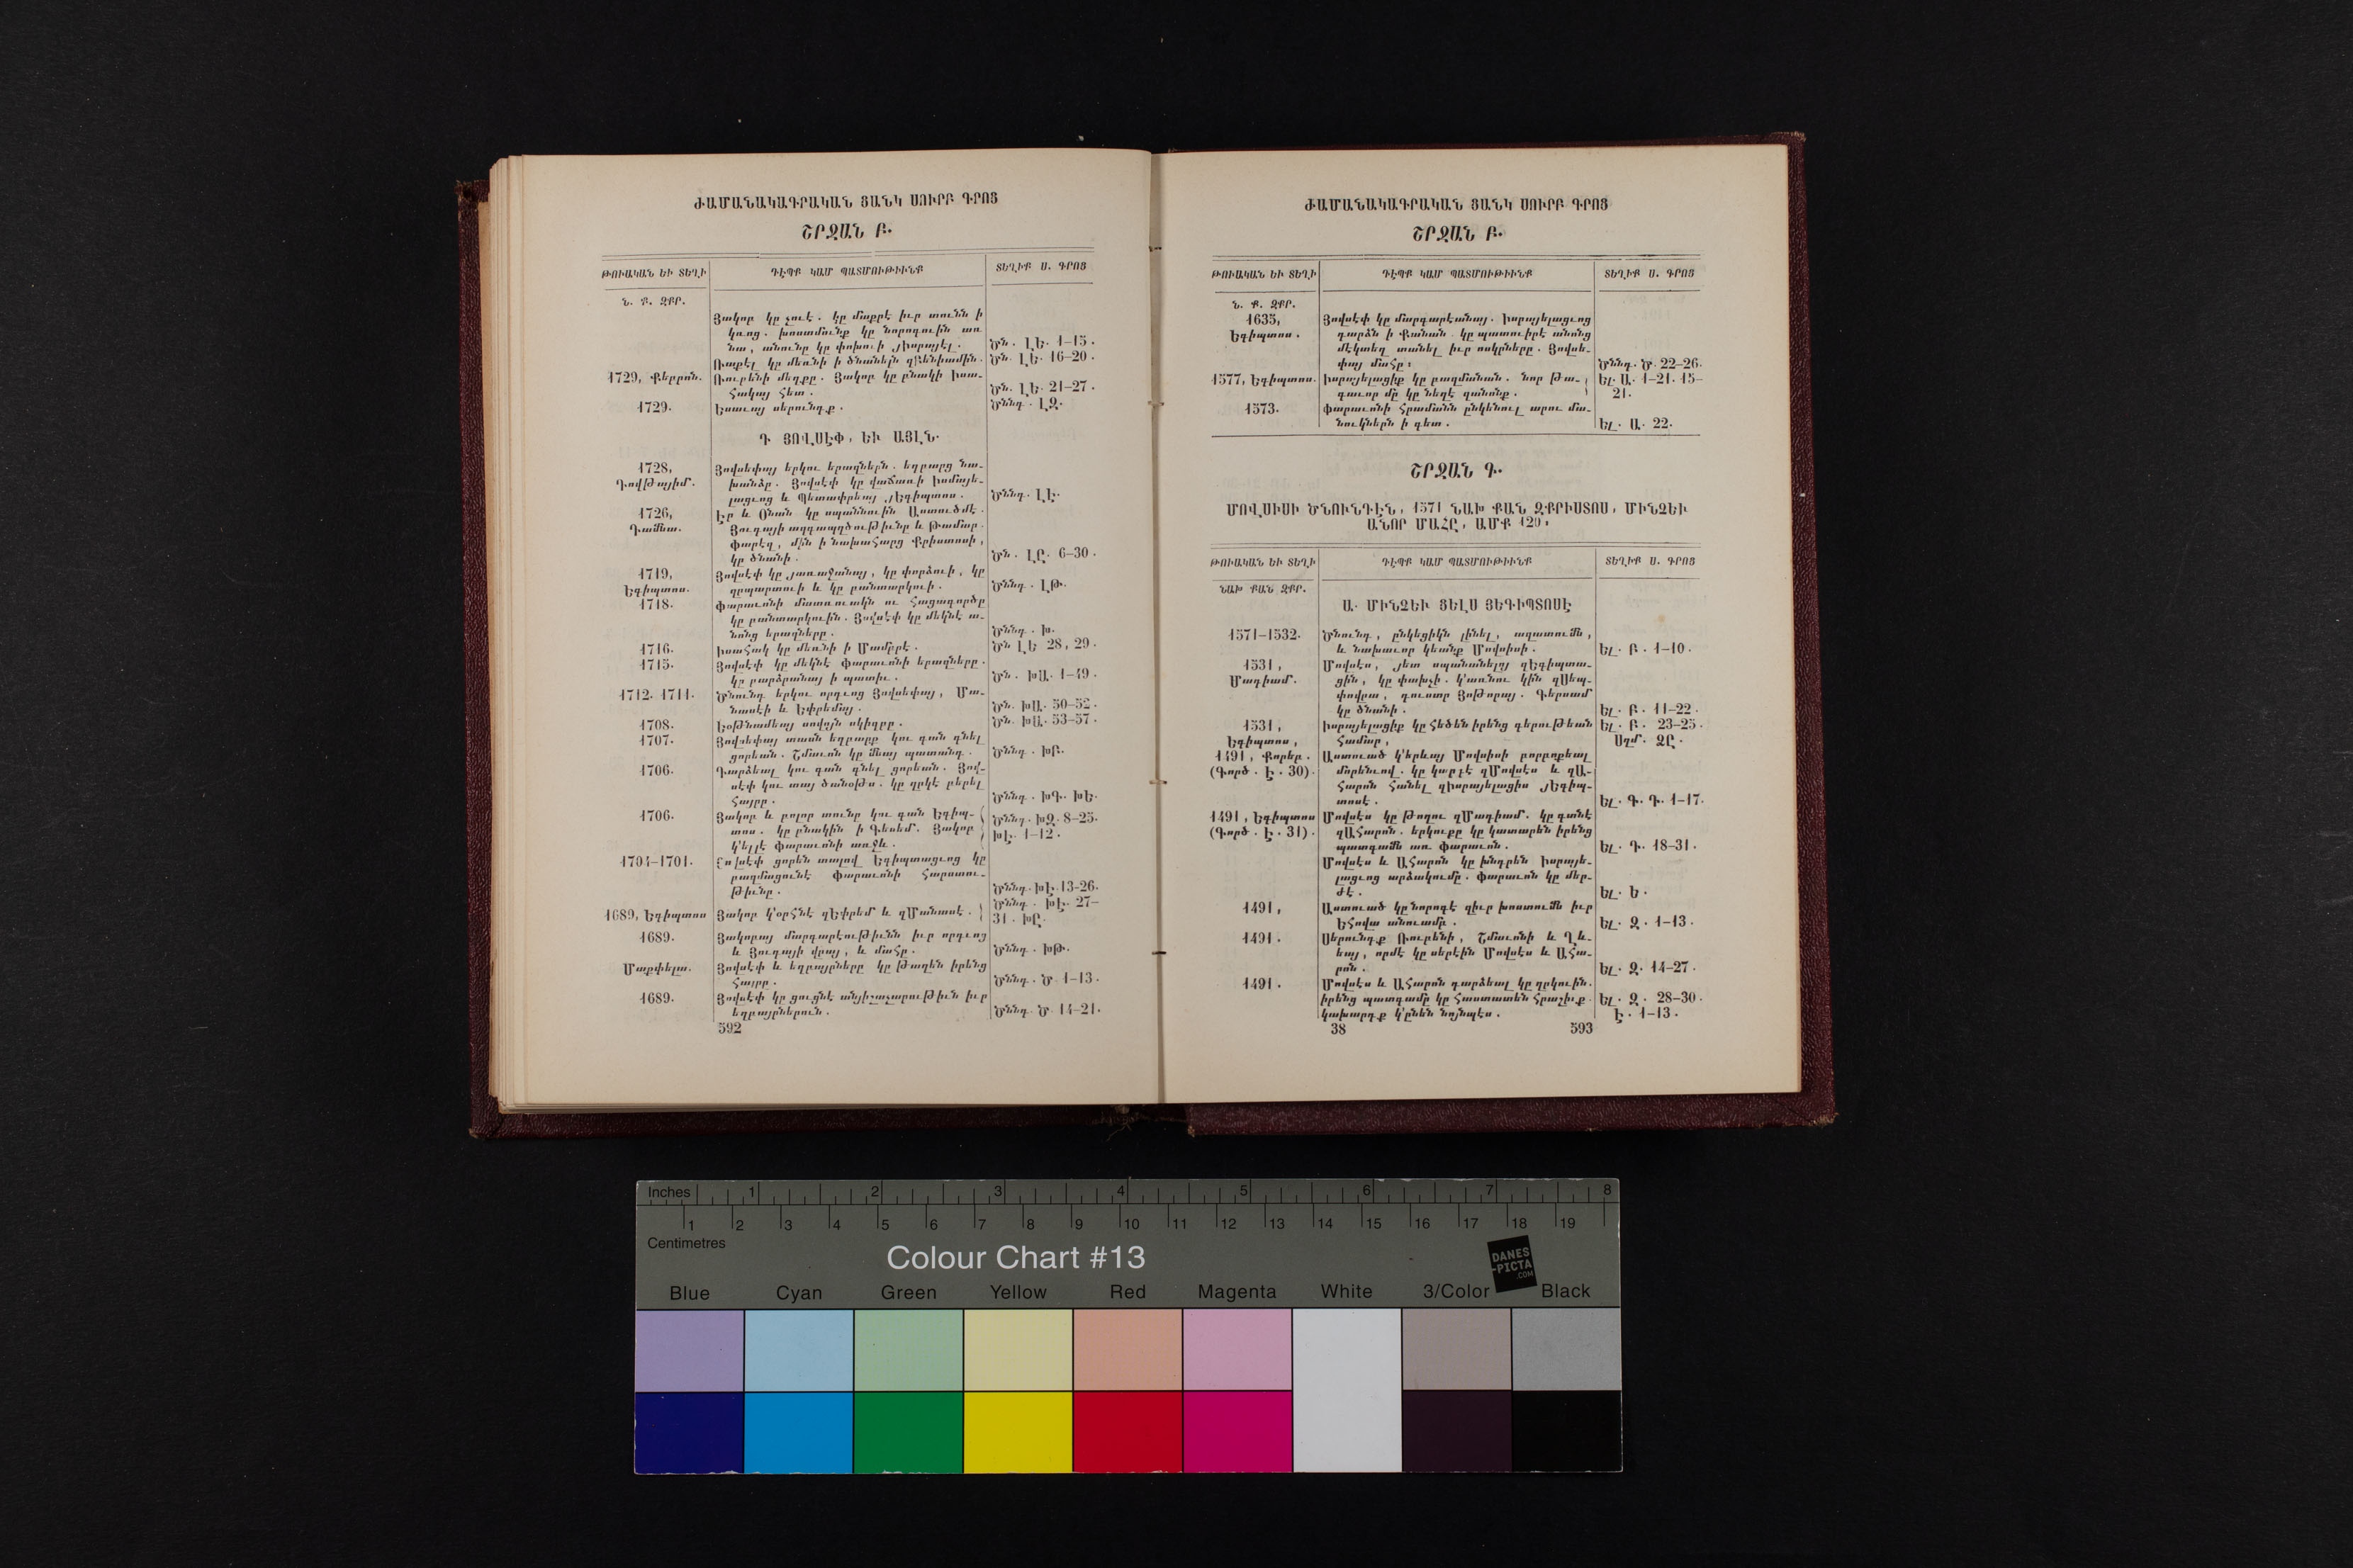 ԺԱՄԱՆԱԿԱԳՐԱԿԱՆ ՑԱՆԿ ՍՈՒՐԲ ԳՐՈՑ
ՇՐՋԱՆ Բ.
ԹՈՒԱԿԱՆ ԵՒ ՏԵՂԻ ԴԷՊՔ ԿԱՄ ՊԱՏՄՈՒԹԻՒՆՔ ՏԵՂԻՔ Ս. ԳՐՈՑ
Ն. Ք. ԶՔՐ.
Յակոբ կը չուէ. կը մաքրէ իւր տունն ի
կռոց. խոստմունք կը նորոգուին առ
նա, անունը կը փոխուի յԻսրայէլ. Ծն. ԼԵ. 1–15.
Ռաքէլ կը մեռնի ի ծնանելն զԲենիամին. Ծն. ԼԵ. 16–20.
1729, Քեբրոն. Ռուբենի մեղքը. Յակոբ կը բնակի Իսա-
հակայ հետ. Ծն. ԼԵ. 21–27.
1729. Եսաւայ սերունդք. Ծննդ. ԼԶ.
Դ ՅՈՎՍԷՓ, ԵՒ ԱՅԼՆ.
1728, Յովսեփայ երկու երազներն. եղբարց նա-
Դովթայիմ. խանձը. Յովսէփ կը վաճառի Իսմայե-
լացւոց և Պետափրեայ յԵգիպտոս. Ծննդ. ԼԷ.
1726, Էր և Օնան կը սպաննուին Աստուծմէ.
Դամնա. Յուդայի ազգապղծութիւնը և Թամար.
Փարէզ, մին ի նախահարց Քրիստոսի,
կը ծնանի. Ծն. ԼԸ. 6–30.
1719, Յովսէփ կը յառաջանայ, կը փորձուի, կը
Եգիպտոս. զրպարտուի և կը բանտարկուի. Ծննդ. ԼԹ.
1718. Փարաւոնի մատռուակն ու հացագործը
կը բանտարկուին. Յովսէփ կը մեկնէ ա-
նոնց երազները. Ծննդ. Խ.
1716. Իսահակ կը մեռնի ի Մամբրէ. Ծն ԼԵ 28, 29.
1715. Յովսէփ կը մեկնէ Փարաւոնի երազները.
կը բարձրանայ ի պատիւ. Ծն. ԽԱ. 1–49.
1712. 1711. Ծնունդ երկու որդւոց Յովսեփայ, Մա-
նասէի և Եփրեմայ. Ծն. ԽԱ. 50–52.
1708. Եօթնամեայ սովոյն սկիզբը. Ծն. ԽԱ. 53–57.
1707. Յովսեփայ տասն եղբարք կու գան գնել
ցորեան. Շմաւոն կը մնայ պատանդ. Ծննդ. ԽԲ.
1706. Դարձեալ կու գան գնել ցորեան. Յով-
սէփ կու տայ ծանօթս. կը ղրկէ բերել
հայրը. Ծննդ. ԽԳ. ԽԵ.
1706. Յակոբ և բոլոր տունը կու գան Եգիպ- Ծննդ. ԽԶ. 8–25.
տոս. կը բնակին ի Գեսեմ. Յակոբ ԽԷ. 1–12.
կ՚ելլէ Փարաւոնի առջև.
1704–1701. Յովսէփ ցորեն տալով Եգիպտացւոց կը
բազմացունէ Փարաւոնի հարստու-
թիւնը. Ծննդ. ԽԷ. 13–26.
Ծննդ. ԽԷ. 27–
1689, Եգիպտոս Յակոբ կ՚օրհնէ զԵփրեմ և զՄանասէ. 31. ԽԸ.
1689. Յակոբայ մարգարէութիւնն իւր որդւոց
և Յուդայի վրայ, և մահը. Ծննդ. ԽԹ.
Մաքփելա. Յովսէփ և եղբայրները կը թաղեն իրենց
հայրը. Ծննդ. Ծ. 1–13.
1689. Յովսէփ կը ցուցնէ անյիշաչարութիւն իւր
եղբայրներուն. Ծննդ. Ծ. 14–21.
592
ԺԱՄԱՆԱԿԱԳՐԱԿԱՆ ՑԱՆԿ ՍՈՒՐԲ ԳՐՈՑ
ՇՐՋԱՆ Բ.
ԹՈՒԱԿԱՆ ԵՒ ՏԵՂԻ ԴԷՊՔ ԿԱՄ ՊԱՏՄՈՒԹԻՒՆՔ ՏԵՂԻՔ Ս. ԳՐՈՑ
Ն. Ք. ԶՔՐ.
1635, Յովսէփ կը մարգարէանայ. Իսրայելացւոց
Եգիպտոս. դարձն ի Քանան. կը պատուիրէ անոնց
մէկտեղ տանել իւր ոսկրները. Յովսե-
փայ մահը։ Ծննդ. Ծ. 22–26.
1577, Եգիպտոս. Իսրայելացիք կը բազմանան. նոր թա- Ել. Ա. 1–21. 15–
գաւոր մը կը նեղէ զանոնք. 21.
1573. Փարաւոնի հրամանն ընկենուլ արու մա-
նուկներն ի գետ. Ել. Ա. 22.
ՇՐՋԱՆ Գ.
ՄՈՎՍԻՍԻ ԾՆՈՒՆԴԷՆ, 1571 ՆԱԽ ՔԱՆ ԶՔՐԻՍՏՈՍ, ՄԻՆՉԵՒ
ԱՆՈՐ ՄԱՀԸ, ԱՄՔ 120։
ԹՈՒԱԿԱՆ ԵՒ ՏԵՂԻ ԴԷՊՔ ԿԱՄ ՊԱՏՄՈՒԹԻՒՆՔ ՏԵՂԻՔ Ս. ԳՐՈՑ
ՆԱԽ ՔԱՆ ԶՔՐ.
Ա. ՄԻՆՉԵՒ ՅԵԼՍ ՅԵԳԻՊՏՈՍԷ
1571–1532. Ծնունդ, ընկեցիկն լինել, ազատումն,
և նախաւոր կեանք Մովսիսի. Ել. Բ. 1–10.
1531, Մովսէս, յետ սպանանելոյ զԵգիպտա-
Մադիամ. ցին, կը փախչի. կ՚առնու կին զՍեպ-
փովրա, դուստր Յոթորայ. Գերսամ
կը ծնանի. Ել. Բ. 11–22.
1531, Իսրայելացիք կը հեծեն իրենց գերութեան Ել. Բ. 23–25.
Եգիպտոս, համար, Սղմ. ՁԸ.
1491, Քորեբ. Աստուած կ՚երևայ Մովսիսի բորբոքեալ
(Գործ. Է. 30). մորենւով. կը կարգէ զՄովսէս և զԱ-
հարոն հանել զԻսրայելացիս յԵգիպ-
տոսէ. Ել. Գ. Դ. 1–17.
1491, Եգիպտոս Մովսէս կը թողու զՄադիամ. կը գտնէ
(Գործ. Է. 31). զԱհարոն. երկուքը կը կատարեն իրենց
պատգամն առ Փարաւոն. Ել. Դ. 18–31.
Մովսէս և Ահարոն կը խնդրեն Իսրայե-
լացւոց արձակումը. Փարաւոն կը մեր-
ժէ. Ել. Ե.
1491, Աստուած կը նորոգէ զիւր խոստումն իւր
Եհովա անուամբ. Ել. Զ. 1–13.
1491. Սերունդք Ռուբենի, Շմաւոնի և Ղև-
եայ, որմէ կը սերէին Մովսէս և Ահա-
րոն. Ել. Զ. 14–27.
1491. Մովսէս և Ահարոն դարձեալ կը ղրկուին.
իրենց պատգամը կը հաստատեն հրաշիւք. Ել. Զ. 28–30.
կախարդք կ՚ընեն նոյնպէս. Է. 1–13.
38 593
Inches 1 2 3 4 5 6 7 8
1 2 3 4 5 6 7 8 9 10 11 12 13 14 15 16 17 18 19
Centimetres
Colour Chart #13
DANES
-PICTA
.COM
Blue Cyan Green Yellow Red Magenta White 3/Color Black